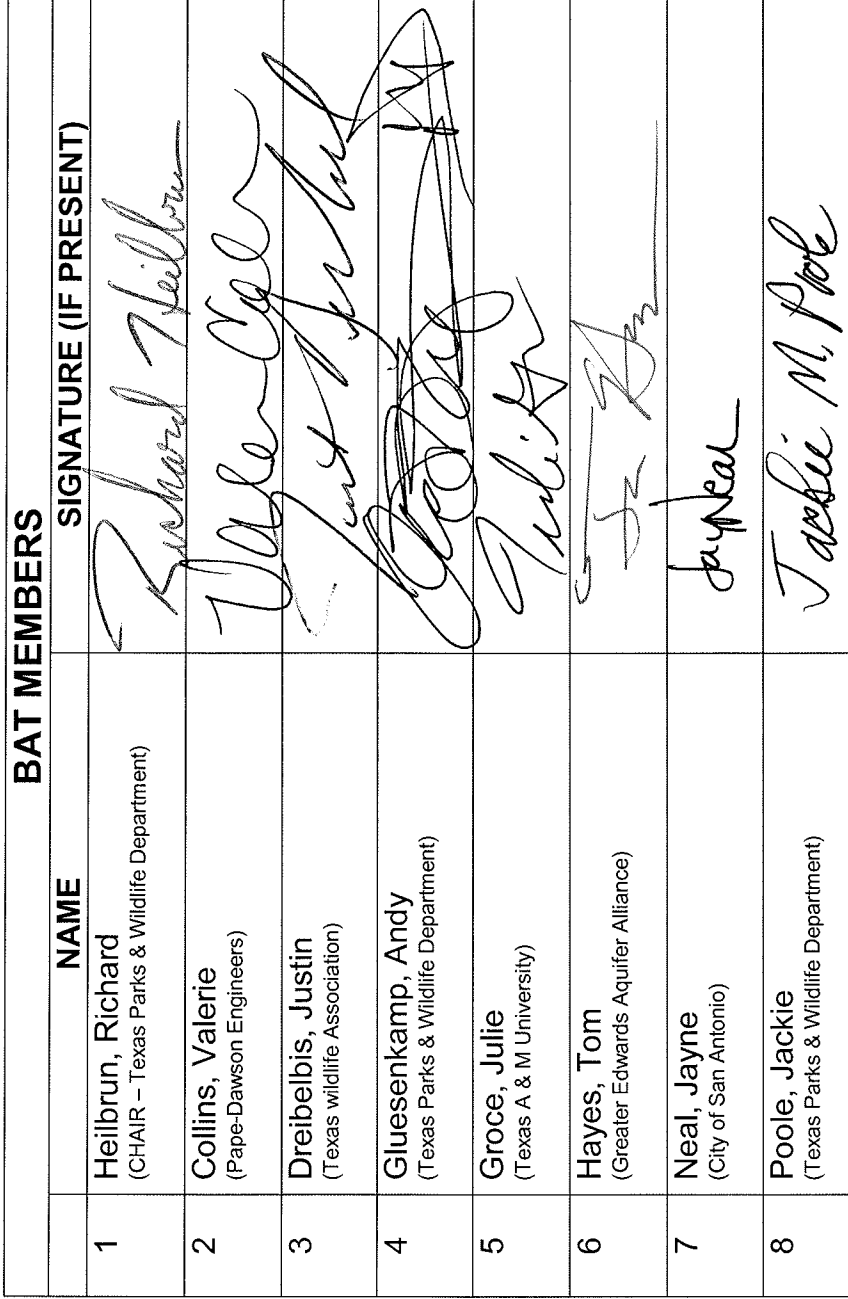 BAT MEMBERS
NAME
SIGNATURE (IF PRESENT)
1
Heilbrun, Richard
(CHAIR – Texas Parks & Wildlife Department)
Richard Heilbrun
2
Collins, Valerie
(Pape-Dawson Engineers)
3
Dreibelbis, Justin
(Texas wildlife Association)
4
Gluesenkamp, Andy
(Texas Parks & Wildlife Department)
5
Groce, Julie
(Texas A & M University)
6
Hayes, Tom
(Greater Edwards Aquifer Alliance)
7
Neal, Jayne
(City of San Antonio)
8
Poole, Jackie
(Texas Parks & Wildlife Department)
Jackie M. Poole